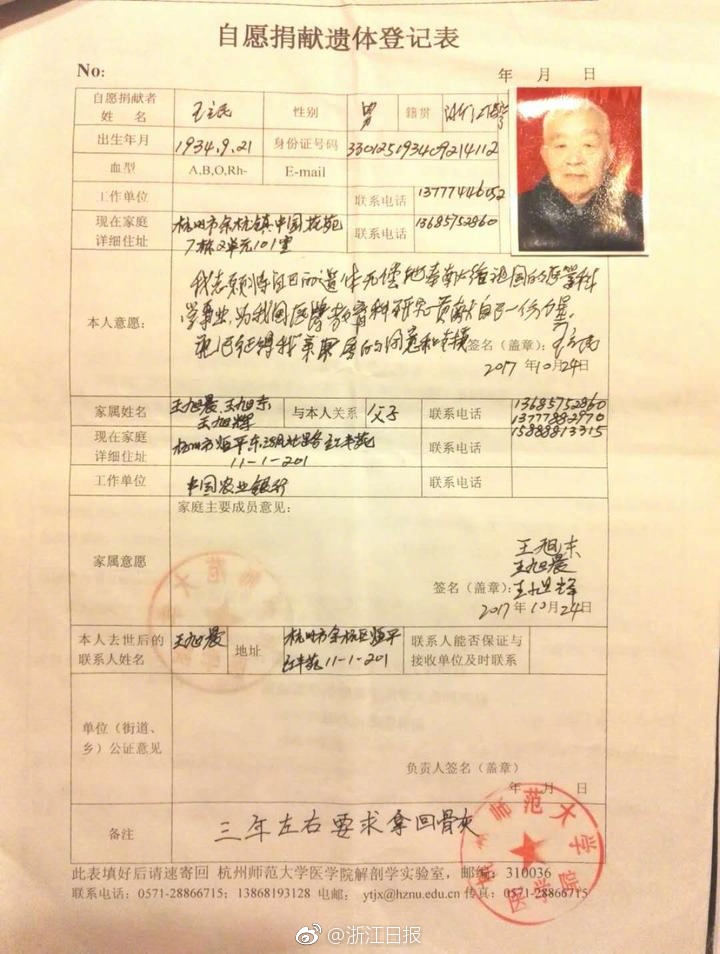 自愿捐献遗体登记表
No: 年 月 日
自愿捐献者姓名 王立民 性别 男 籍贯 浙江
出生年月 1934.9.21 身份证号码 330125193409214112
血型 A,B,O,Rh- E-mail
工作单位 联系电话 13777446052
现在家庭详细住址 杭州市余杭镇中国花苑 联系电话 13685752860
7栋2单元101室
本人意愿:
我志愿将自己的遗体无偿地奉献给祖国的医学科
学事业,为我国医学教育科研究贡献自己一份力量,
现已征得我家属的同意和支持
签名(盖章):王立民
2017年10月24日
家属姓名 王旭晨、王旭东 与本人关系 父子 联系电话 13685752860
王旭辉 13777882970
15888813315
现在家庭详细住址 杭州市 红丰苑 联系电话
11-1-201
工作单位 中国农业银行 联系电话
家属意愿 家庭主要成员意见:
王旭东
王旭晨
签名(盖章):王旭辉
2017年10月24日
本人去世后的联系人姓名 王旭晨 地址 杭州市余杭区临平 联系人能否保证与接收单位及时联系
红丰苑11-1-201
单位(街道、乡)公证意见
负责人签名(盖章)
年 月 日
备注 三年左右要求拿回骨灰
杭州师范大学
医学院
此表填好后请速寄回 杭州师范大学医学院解剖学实验室,邮编:310036
联系电话:0571-28866715;13868193128 电邮: ytjx@hznu.edu.cn 传真:0571-28866715
@浙江日报